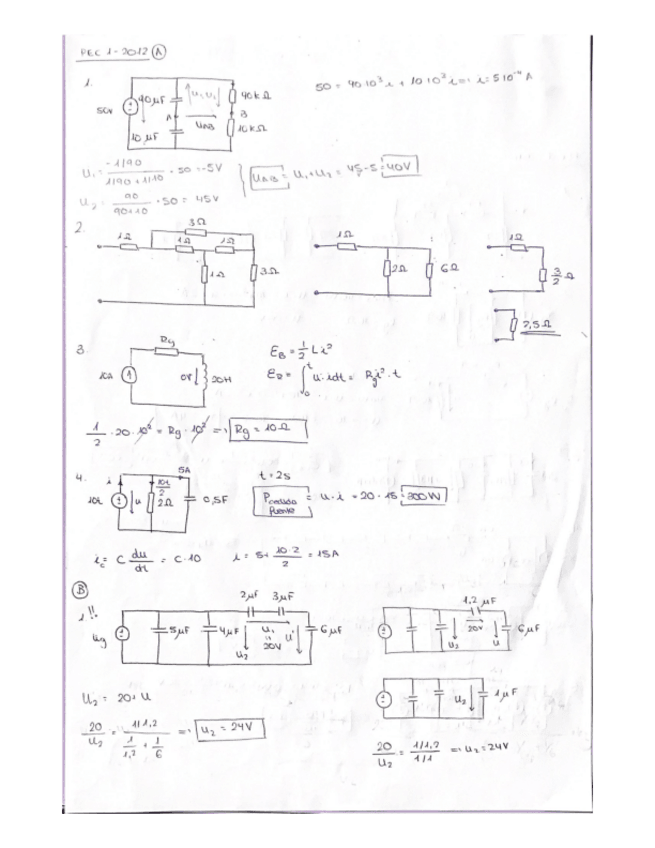 PEC 1-2012 (A)
1.
50V 40μF U1 U2 40kΩ
A UAB B
10μF 10kΩ
50 = 40·10³ i + 10·10³ i => i = 5·10⁻⁴ A
U1 = -1/90 / 1/90 + 1/10 · 50 = -5V
U2 = 90 / 90+10 · 50 = 45V
UAB = U1 + U2 = 45 - 5 = 40V
2.
3Ω
1Ω 1Ω 1Ω
1Ω 3Ω
1Ω
2Ω 6Ω
1Ω
3/2 Ω
2,5Ω
3.
Rg
10A 0V 20H
EB = 1/2 L i²
ER = ∫₀ᵗ u·i dt = Rg i²·t
1/2 · 20 · 10² = Rg · 10² => Rg = 10Ω
4.
10t i u 10t/2 2Ω 5A 0,5F
t = 2s
Pcedida fuente = u·i = 20·15 = 300W
ic = C du/dt = C·10
i = 5 + 10·2/2 = 15A
(B)
1.!!
2μF 3μF
ug 5μF 4μF U2 U1 = 20V U 6μF
1,2μF
U2 20V U 6μF
U2 = 20 + U
U2 1μF
20/U2 = 1/1,2 / 1/1,2 + 1/6 => U2 = 24V
20/U2 = 1/1,2 / 1/1 => U2 = 24V